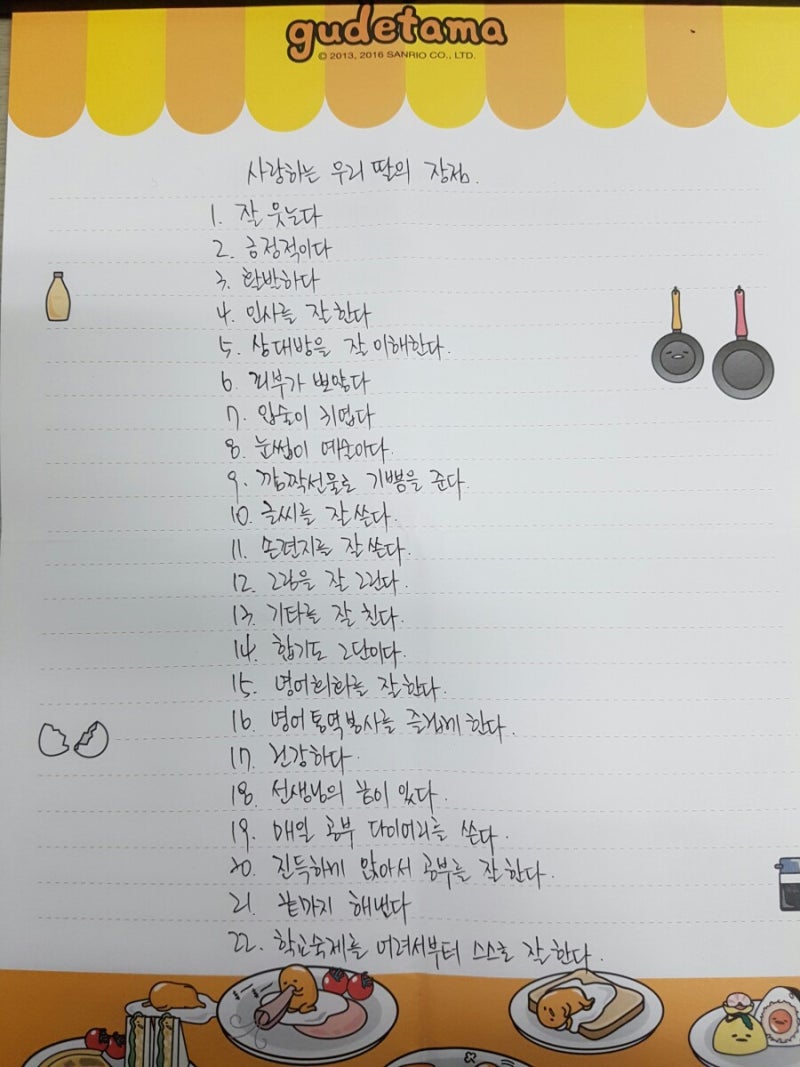 gudetama
© 2013, 2016 SANRIO CO., LTD.
사랑하는 우리 딸의 장점.
1. 잘 웃는다
2. 긍정적이다
3. 활발하다
4. 인사를 잘한다
5. 상대방을 잘 이해한다.
6. 피부가 뽀얗다
7. 입술이 귀엽다
8. 눈썹이 예술이다.
9. 깜짝선물로 기쁨을 준다.
10. 글씨를 잘 쓴다.
11. 손편지를 잘 쓴다.
12. 그림을 잘 그린다.
13. 기타를 잘 친다.
14. 합기도 2단이다.
15. 영어회화를 잘한다.
16. 영어통역봉사를 즐겁게 한다.
17. 건강하다.
18. 선생님의 꿈이 있다.
19. 매일 공부 다이어리를 쓴다.
20. 진득하게 앉아서 공부를 잘한다.
21. 끝까지 해낸다
22. 학교숙제를 어려서부터 스스로 잘한다.